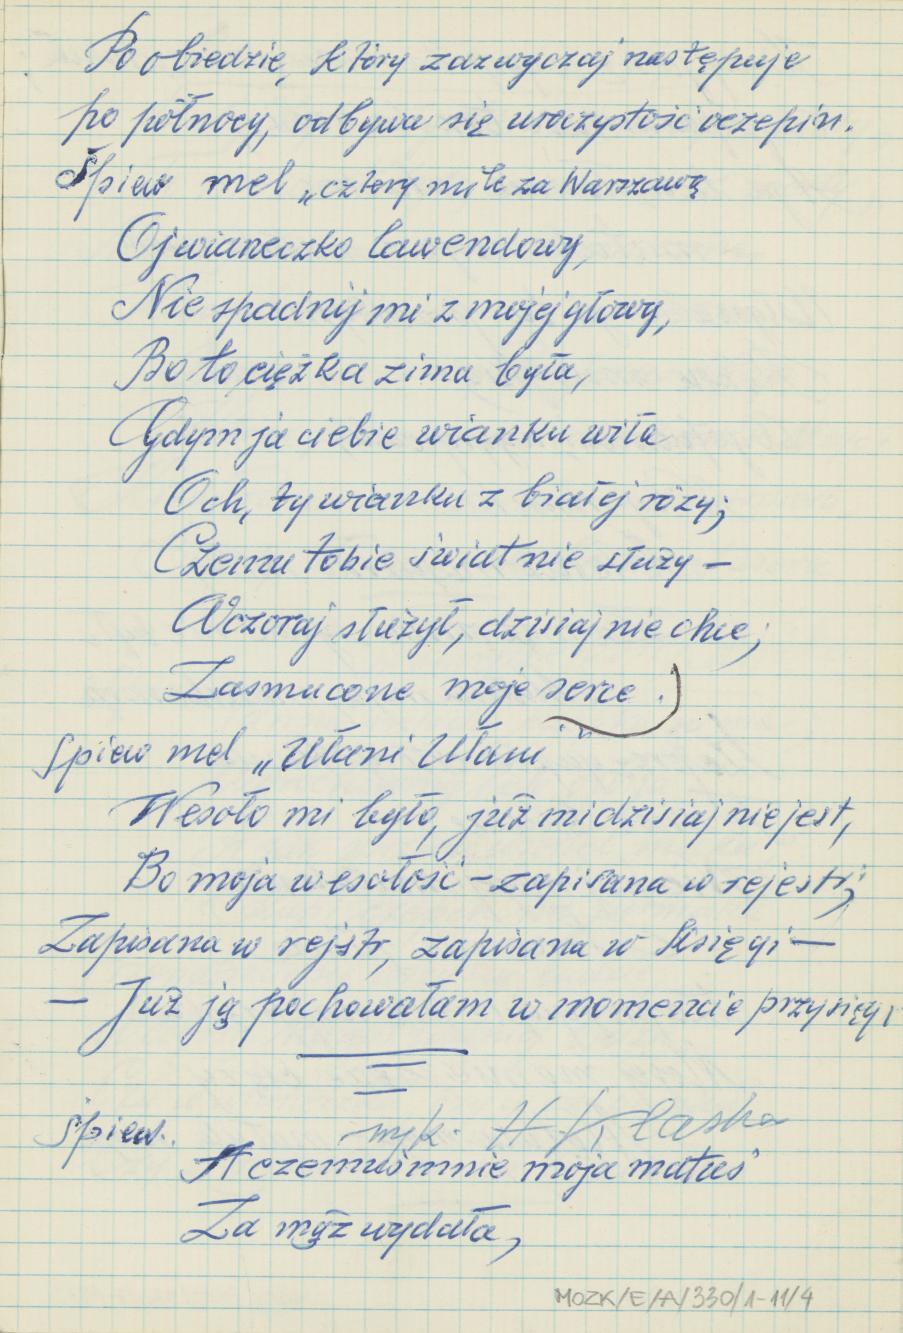 Po obiedzie, który zazwyczaj następuje
po północy, odbywa się uroczystość oczepin.
Śpiew mel „cztery mile za Warszawą
Oj wianeczko lawendowy,
Nie spadnij mi z mojej głowy,
Bo to ciężka zima była,
Gdym ja ciebie wianku wiła
Och, ty wianku z białej róży;
Czemu tobie świat nie służy –
Wczoraj służył, dzisiaj nie chce;
Zasmucone moje serce.
Śpiew mel „Ułani Ułani"
Wesoło mi było, już mi dzisiaj nie jest,
Bo moja wesołość – zapisana w rejestr;
Zapisana w rejstr, zapisana w księgi –
– Już ją pochowałam w momencie przysięgi
Śpiew. wyk. H Klaska
A czemuś mnie moja matuś
Za mąż wydała,
MOZK/E/A/330/1-11/4